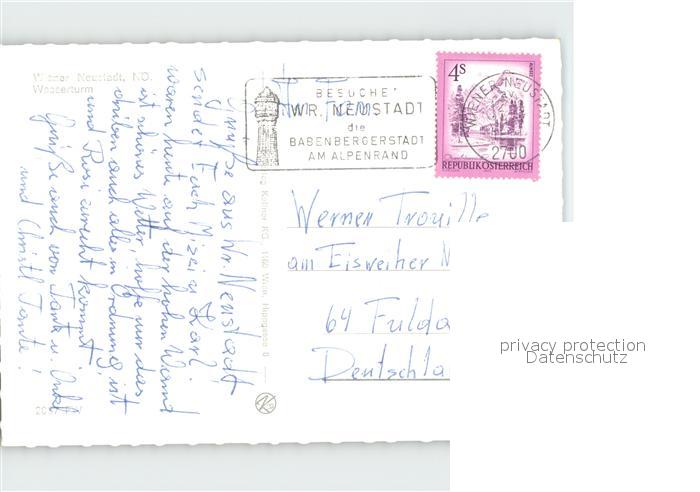 Wiener Neustadt, NÖ.
Wasserturm
BESUCHE
WR. NEUSTADT
die
BABENBERGERSTADT
AM ALPENRAND
4S
REPUBLIK ÖSTERREICH
WIENER NEUSTADT
2700
Grüße aus Wr. Neustadt
sendet Euch Mizzi u. Karl.
waren heute auf der hohen Wand
ist schönes Wetter, hoffe nur das
drüben auch alles in Ordnung ist
und Rosi zurecht kommt.
Grüße auch von Tante u. Onkel
und Christl Tante!
Fam.
Werner Trouille
am Eisweiher
64 Fulda
Deutschla
privacy protection
Datenschutz